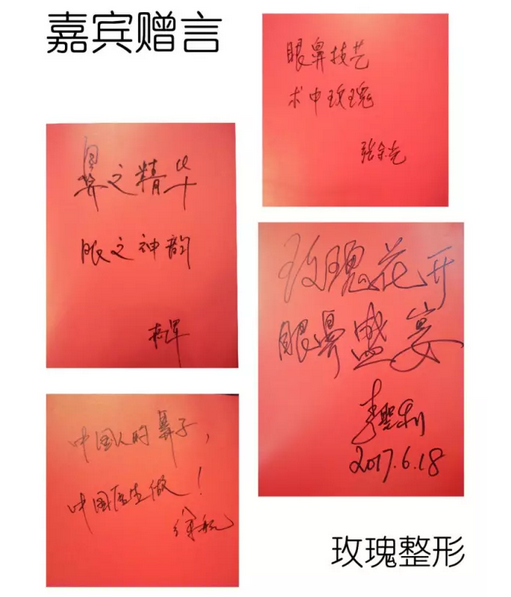 嘉宾赠言
眼鼻技艺
术中玫瑰
鼻之精华
眼之神韵
玫瑰花开
眼鼻盛宴
李圣利
2017.6.18
中国人的鼻子，
中国医生做！
徐航
玫瑰整形